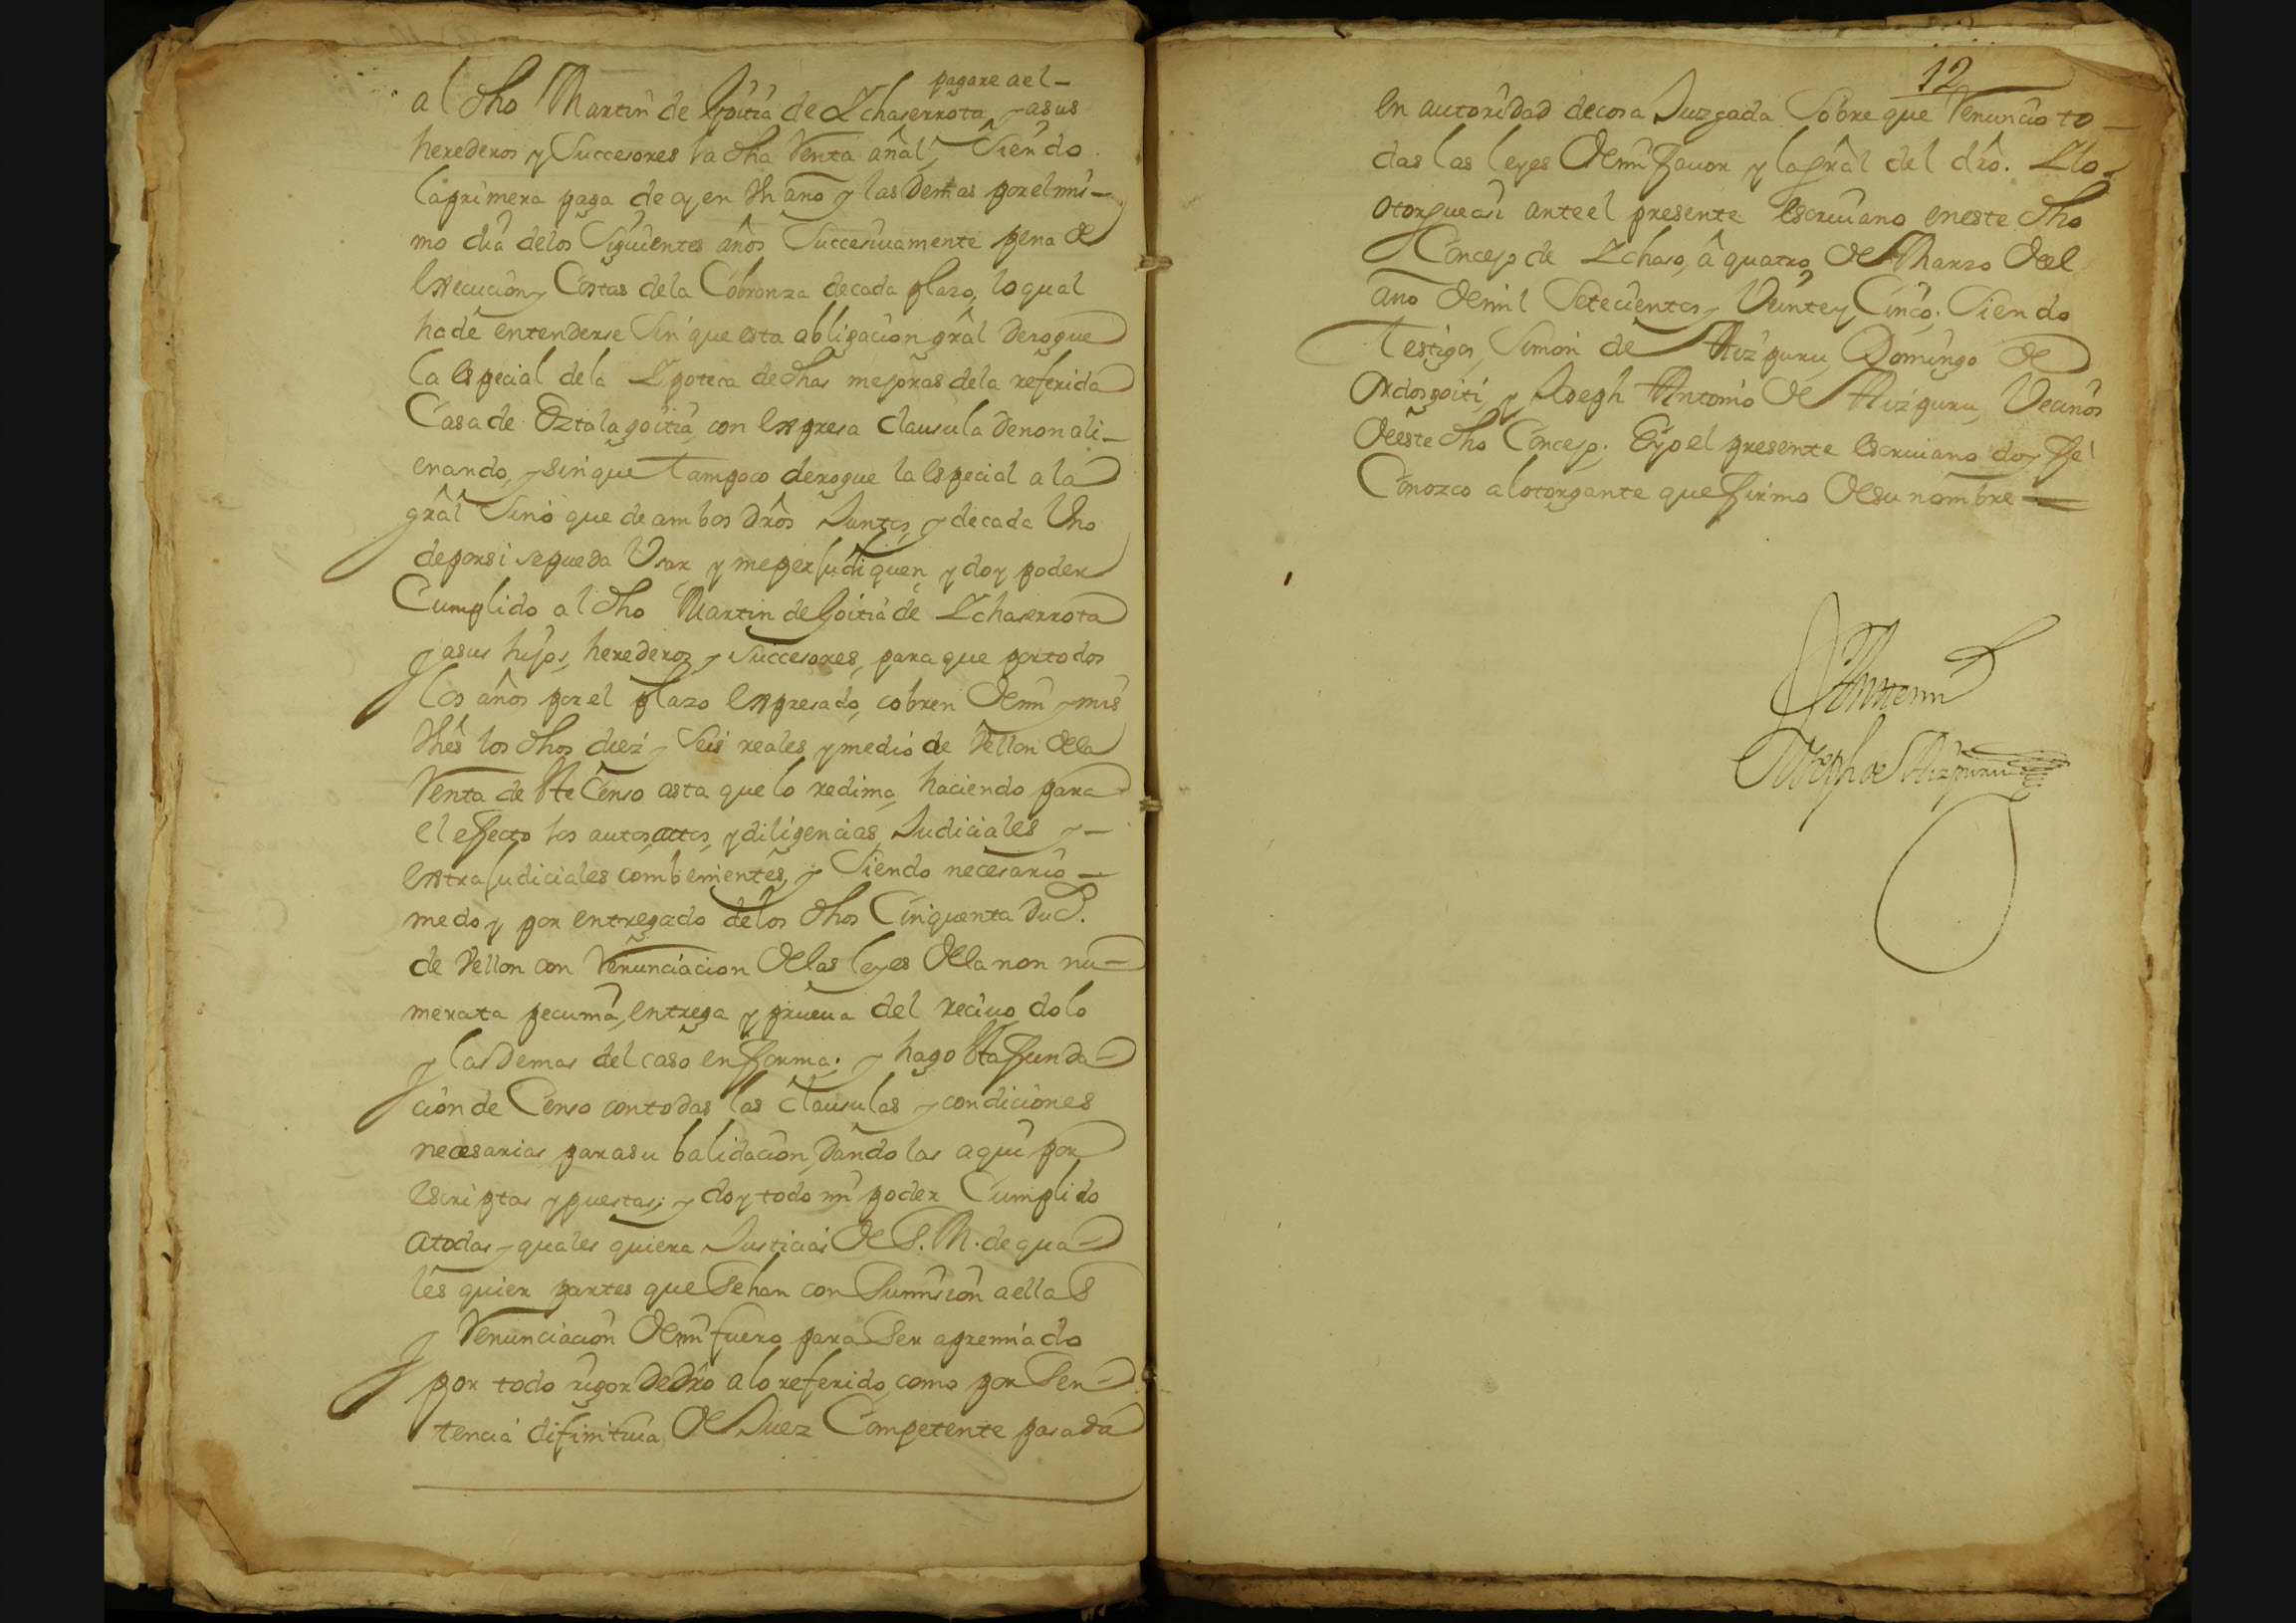 pagare ael
al dho Martin de Goitia de Ychaserrota y asus
herederos y Succesores la dha Renta añal, Siendo
la primera paga de oy en Un año y las Demas por el mis
mo dia delos Siguientes años Succesiuamente pena de
execucion y Costas dela Cobranza decada plazo, lo qual
hade entenderse Sin que esta obligacion grâl Derogue
la especial dela Ypoteca de dhas mejoras dela referida
Casa de Oztalagoitia con expresa clausula denon ali-
enando, y sin que tampoco derogue la especial a la
grâl Sinó que de ambos drôs Juntos, y decada Uno
deporsi sepueda Usar y meperjudiquen y doy poder
Cumplido al dho Martin de Goitia de Ychaserrota
y asus hijos, herederos y Succesores, para que por todos
los años por el plazo expresado, cobren de mi y mis
los dhos diez y Seis reales y medio de Vellon dela
Renta de este Censo asta que lo redima, haciendo para
el efecto los autos, attos, y diligencias Judiciales y
extrajudiciales combenientes, y Siendo necesario
me doy por entregado delos dhos Cinquenta Duds.
de Vellon con Renunciacion delas leyes dela non nu-
merata pecunia, entrega y prueua del reciuo dolo
y las Demas del caso en forma; y hago esta funda-
cion de Censo con todas las clausulas y condiciones
necesarias para su balidacion, dandolas aqui por
escriptas y puestas; y doy todo mi poder Cumplido
atodas y quales quiera Justicias de S. M. de qua-
les quier partes que Sehan con Sumision aellas
y Renunciacion de mi fuero para Ser apremiado
por todo rigor de drô alo referido como por Sen-
tencia difinitiua de Juez Competente pasada
12
en autoridad de cosa Juzgada Sobre que Renuncio to-
das las leyes de mi fauor y la grâl del drô. Y lo
otorgue asi ante el presente escriuano en este dho
Concejo de Ychaso, â quatro de Marzo del
año de mil Setecientos y Veinte y Cinco. Siendo
testigos, Simon de Aizpuru Domingo de
Ordosgoiti, y Joseph Antonio de Aizpuru, Vecinos
de este dho Concejo. E yo el presente escriuano doy fe
Conozco al otorgante que firmo de su nombre
Ante mi
Joseph de Aizpuru